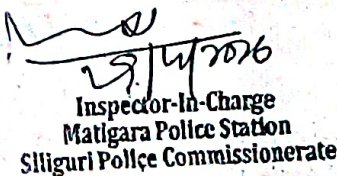 Inspector-In-Charge
Matigara Police Station
Siliguri Police Commissionerate